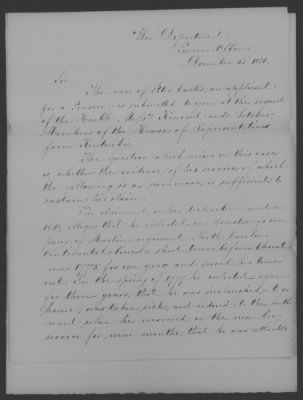 War Department
Pension Office
December 23 1850.
Sir
The case of Peter Curtis, an applicant
for a Pension, is submitted to you, at the request
of the Honble Mess. Kincaid and Letcher,
Members of the House of Representatives
from Kentucky.
The question which arises in this case
is whether the evidence of his service, of which
the following is a summary, is sufficient to
sustain his claim.
The claimant in his declaration made in
1818, alleges that he enlisted in Armstrong's com
pany of Martin's regiment North Carolina
Continental Line, a short time before Christ
mas 1775 for one year and served his time
out. In the spring of 1777 he enlisted again
for three years, that he was furloughed to go
home, was taken sick, and
when he recovered, in the new
service for nine months, that he was attached